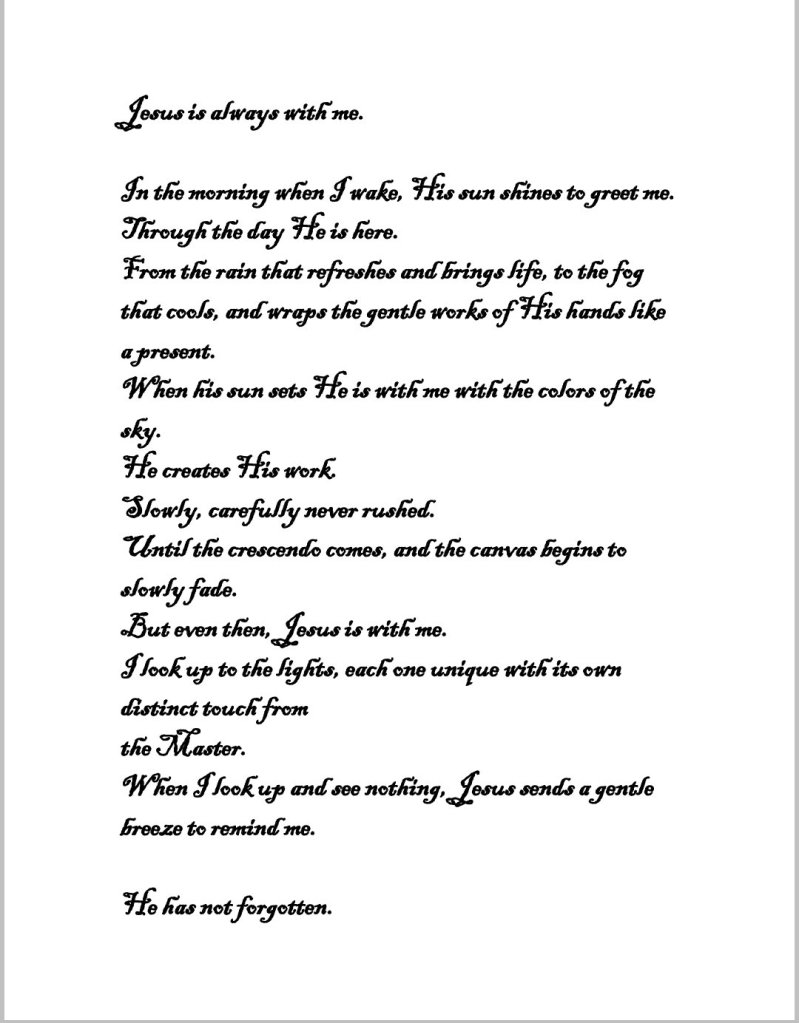 Jesus is always with me.
In the morning when I wake, His sun shines to greet me.
Through the day He is here.
From the rain that refreshes and brings life, to the fog
that cools, and wraps the gentle works of His hands like
a present.
When his sun sets He is with me with the colors of the
sky.
He creates His work.
Slowly, carefully never rushed.
Until the crescendo comes, and the canvas begins to
slowly fade.
But even then, Jesus is with me.
I look up to the lights, each one unique with its own
distinct touch from
the Master.
When I look up and see nothing, Jesus sends a gentle
breeze to remind me.
He has not forgotten.